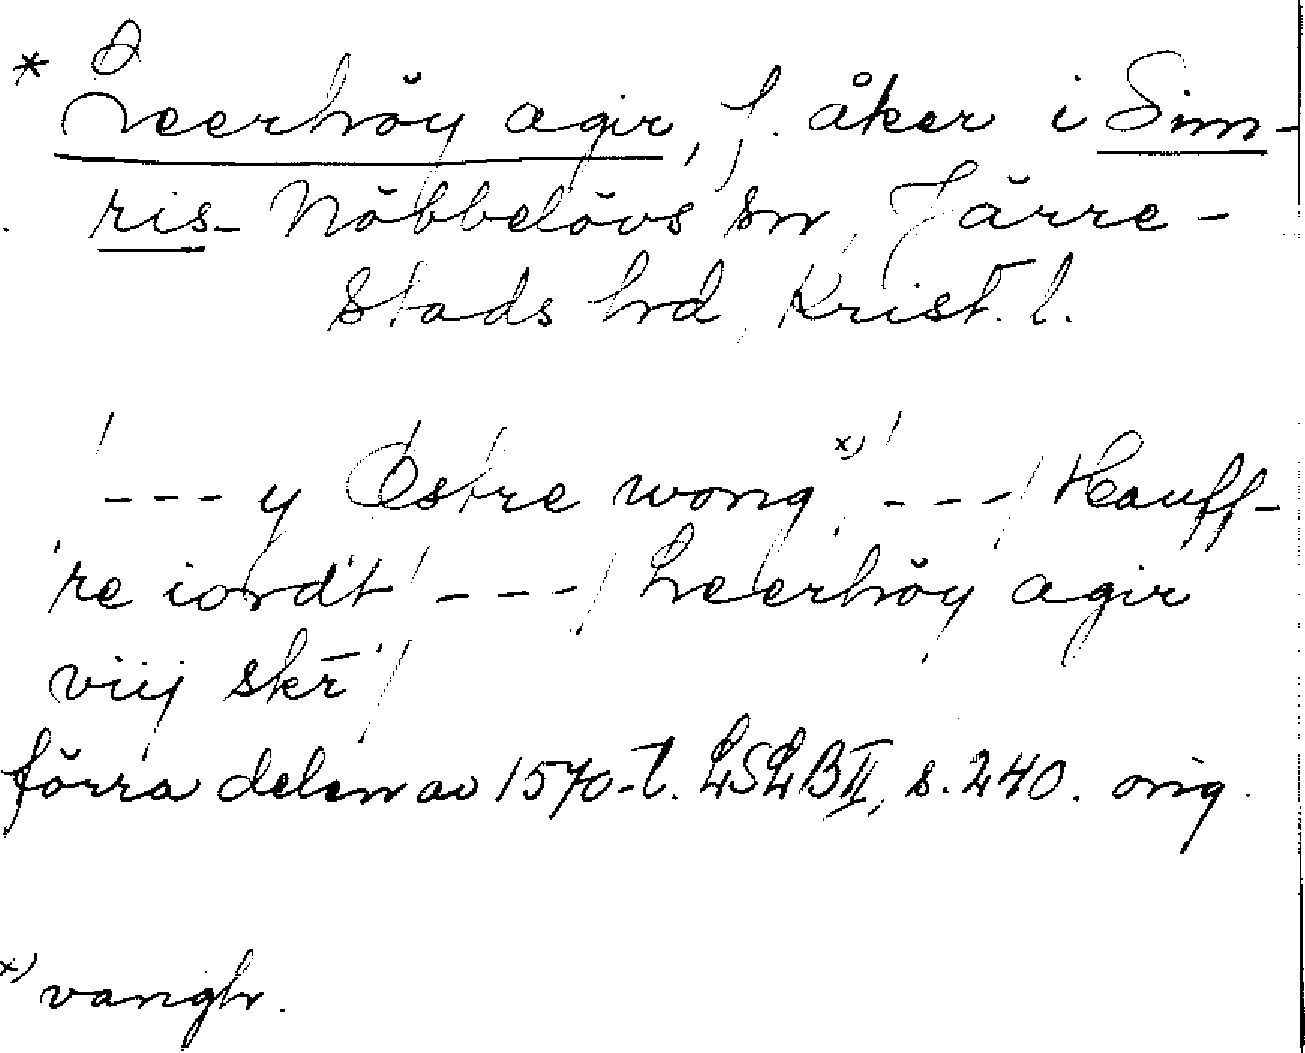 * Leerhöy agir, f. åker i Sim-
ris-Nöbbelövs sn, Järre-
stads hrd, Krist. l.
--- y Östre wong x) --- / Hauff-
re iordt --- / Leerhöy agir
viij skr̄ /
förra delen av 1570-t. LSLB II, s. 240. orig.
x) vangh.